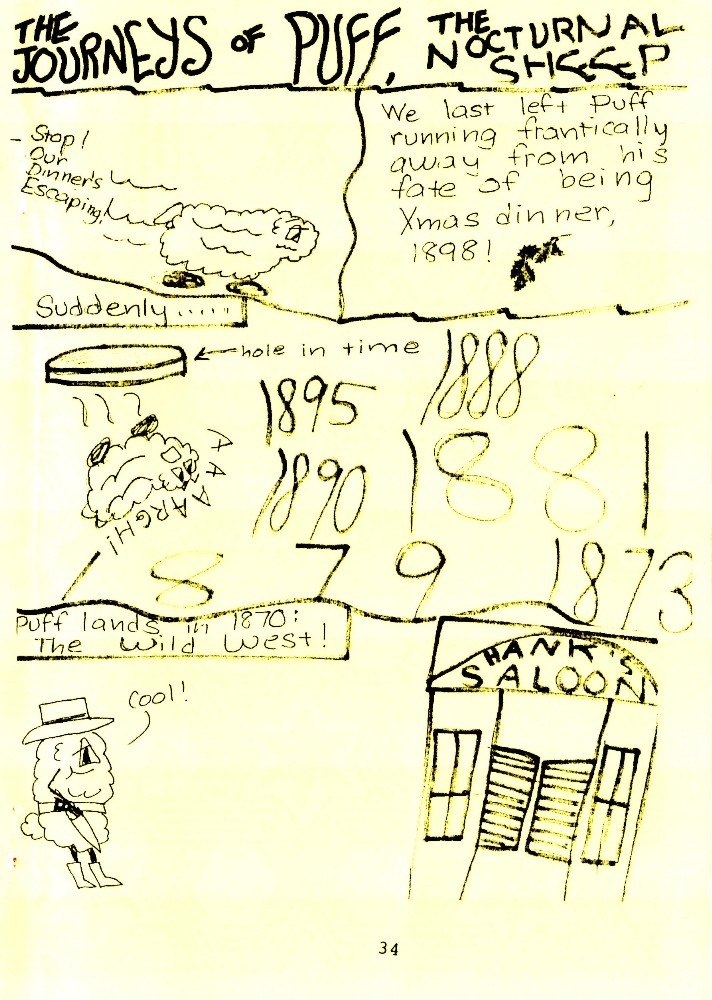 THE
JOURNEYS OF PUFF, THE
NOCTURNAL
SHEEP
- Stop!
Our
Dinner's
Escaping!
We last left Puff
running frantically
away from his
fate of being
Xmas dinner,
1898!
Suddenly.....
hole in time
1895
1888
A A AARGH!
1890
1881
1879
1873
Puff lands in 1870:
The Wild West!
Cool!
HANK'S
SALOON
34